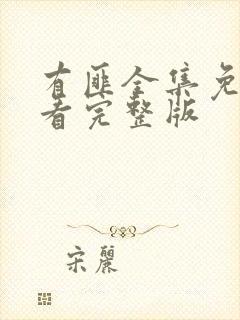 有匪全集免
看完整版
宋丽